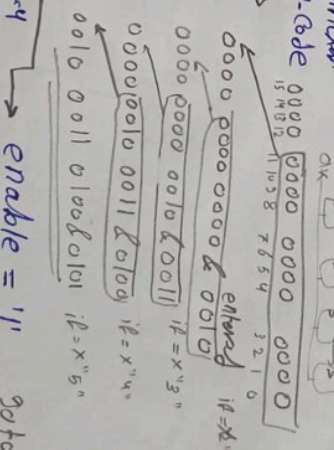 -code
0000 0000 0000 0000
15 14 13 12 11 10 9 8 7 6 5 4 3 2 1 0
entered
0000 0000 0000 & 0010 if = x
0000 0000 0010 & 0011 if = x "3"
0000 0010 0011 & 0100 if = x "4"
0010 0011 0100 & 0101 if = x "5"
enable = '1' goto